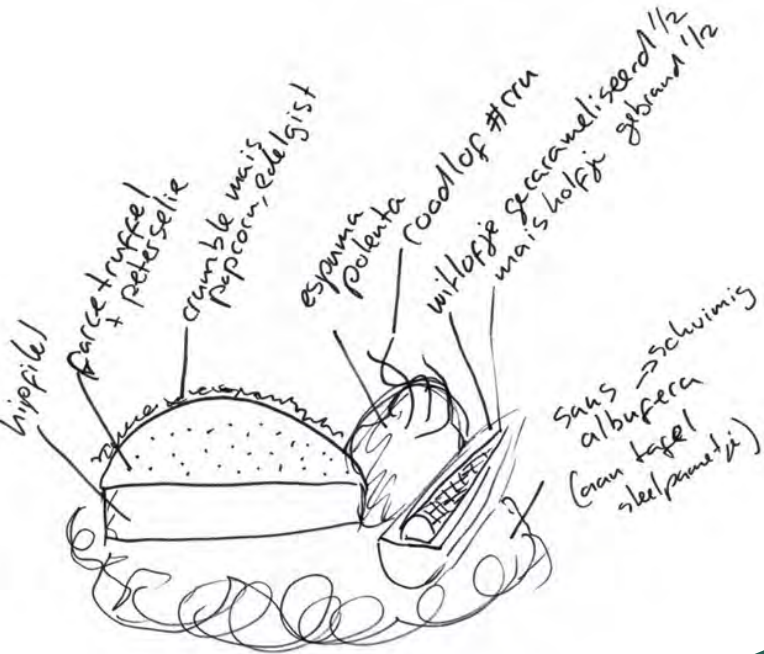 kipfilet
farce truffel
+ peterselie
crumble mais
popcorn, edelgist
espuma
polenta
roodlof
witlofje gecarameliseerd 1/2
mais kolfje gebrand 1/2
saus → schuimig
albufera
(aan tafel
steelpannetje)